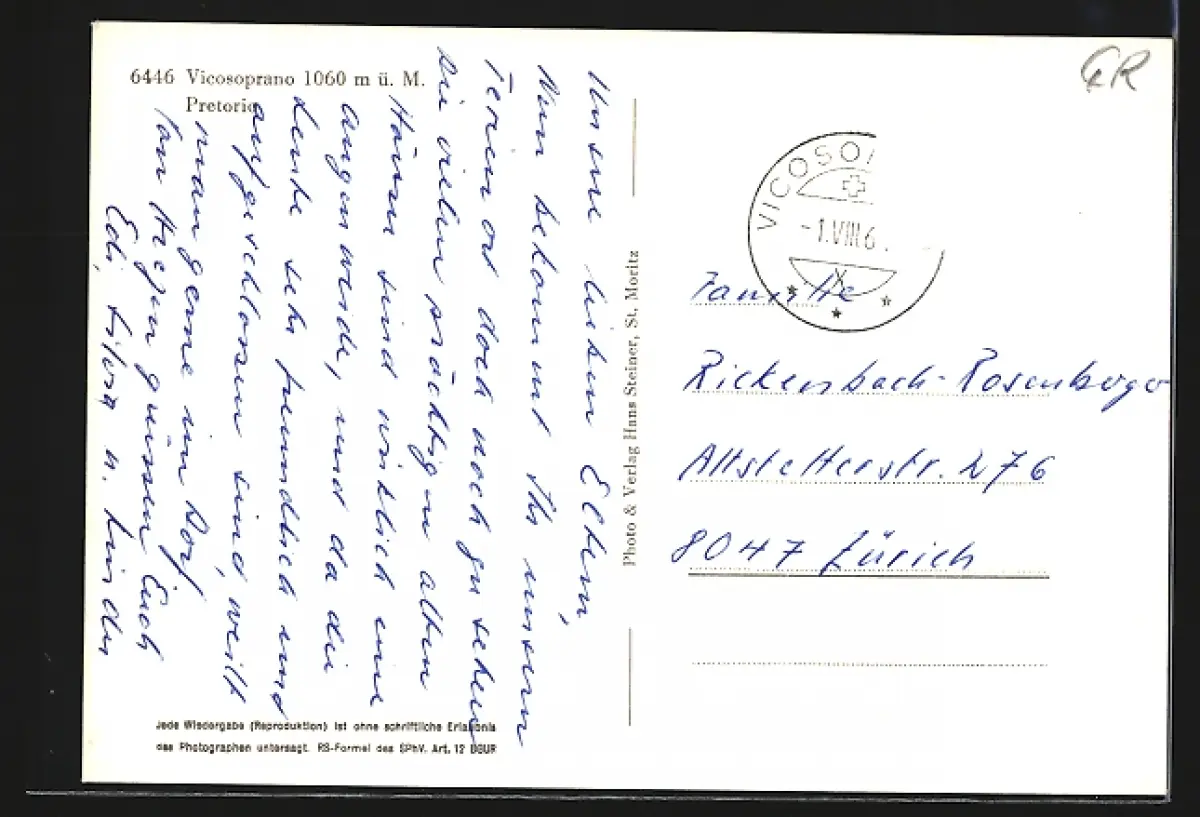 6446 Vicosoprano 1060 m ü. M.
Pretorio
Unsere lieben Eltern,
Nun bekommt Ihr unsern
Ferienort doch noch zu sehen
Die vielen prächtigen alten
Häuser sind wirklich eine
Augenweide, und da die
Leute sehr freundlich und
aufgeschlossen sind, weilt
man gerne im Dorf
grüssen Euch
Edi, u. Kinder
Jede Wiedergabe (Reproduktion) ist ohne schriftliche Erlaubnis
des Photographen untersagt. RS-Formel des SPhV. Art. 12 BGUR
Photo & Verlag Hans Steiner, St. Moritz
GR
VICOSO
-1.VIII 6
Familie
Rickenbach-Rosenberger
Altstetterstr. 276
8047 Zürich